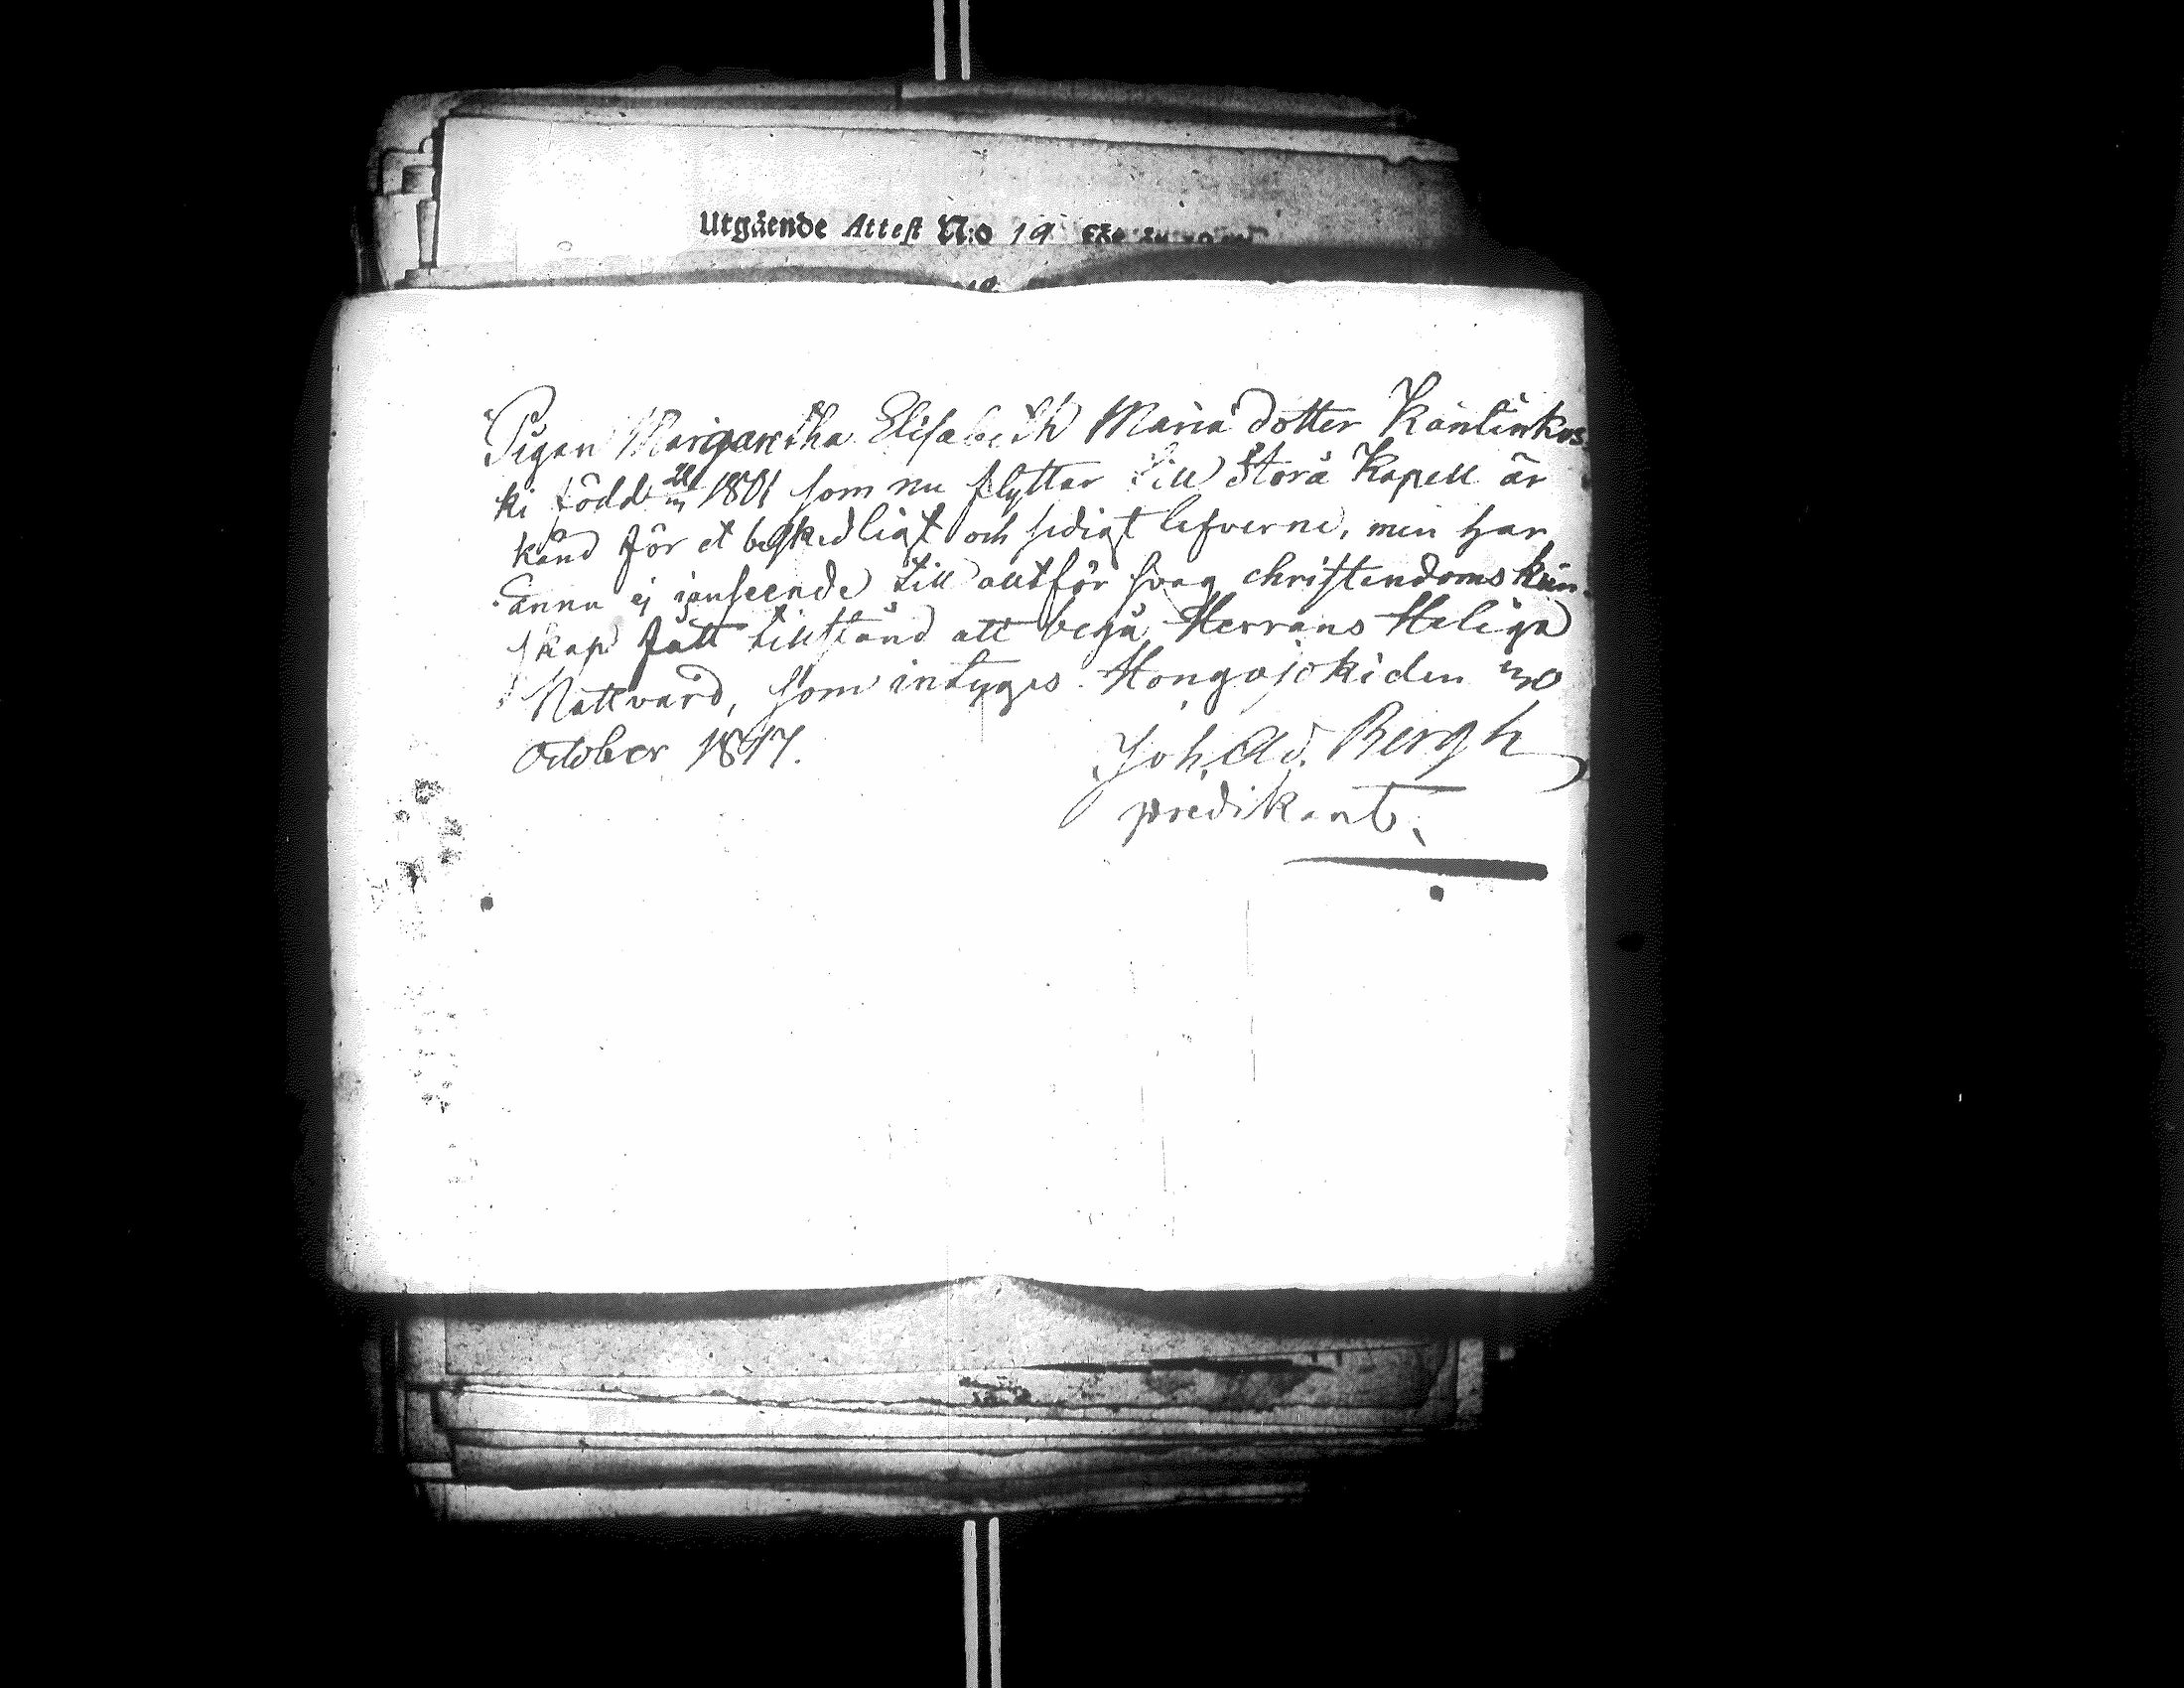 Utgående Attest N:o 19
Pigan Margaretha Elisabeth Maria dotter Känlinkos
ki född 1801 som nu flyttar till Storå Kapell är
känd för et beskedligt och sedigt lefverne, men har
ännu ej i anseende till alltför svag christendoms kun-
skap fått tillstånd att begå Herrans Heliga
Nattvard, som intygas. Hongojoki den
October 1817.
Joh. Ad. Bergh
predikant.